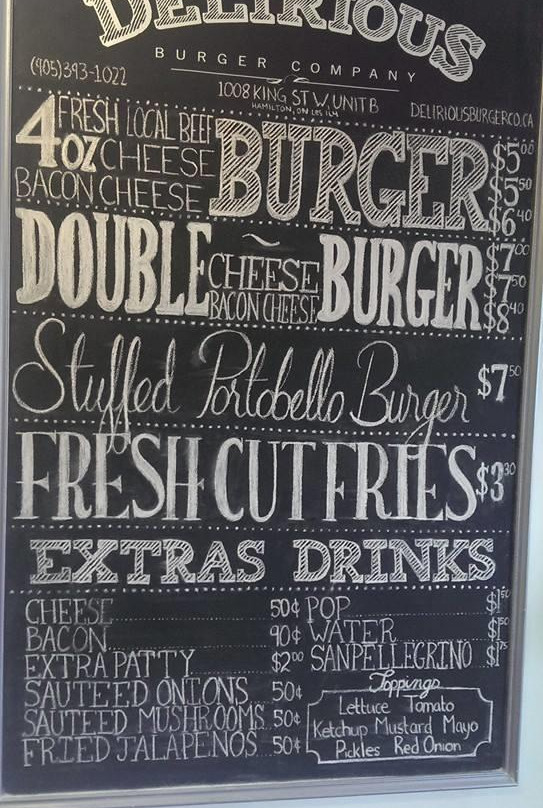 DELIRIOUS
BURGER COMPANY
(905)393-1022
1008 KING ST W, UNIT B
HAMILTON, ON L8S 1L4
DELIRIOUSBURGERCO.CA
4oz FRESH LOCAL BEEF BURGER $5.00
CHEESE $5.50
BACON CHEESE $6.40
DOUBLE ~ BURGER $7.00
CHEESE $7.50
BACON CHEESE $8.40
Stuffed Portobello Burger $7.50
FRESH CUT FRIES $3.30
EXTRAS
CHEESE 50¢
BACON 90¢
EXTRA PATTY $2.00
SAUTEED ONIONS 50¢
SAUTEED MUSHROOMS 50¢
FRIED JALAPENOS 50¢
DRINKS
POP $1.50
WATER $1.50
SANPELLEGRINO $1.75
Toppings
Lettuce Tomato
Ketchup Mustard Mayo
Pickles Red Onion